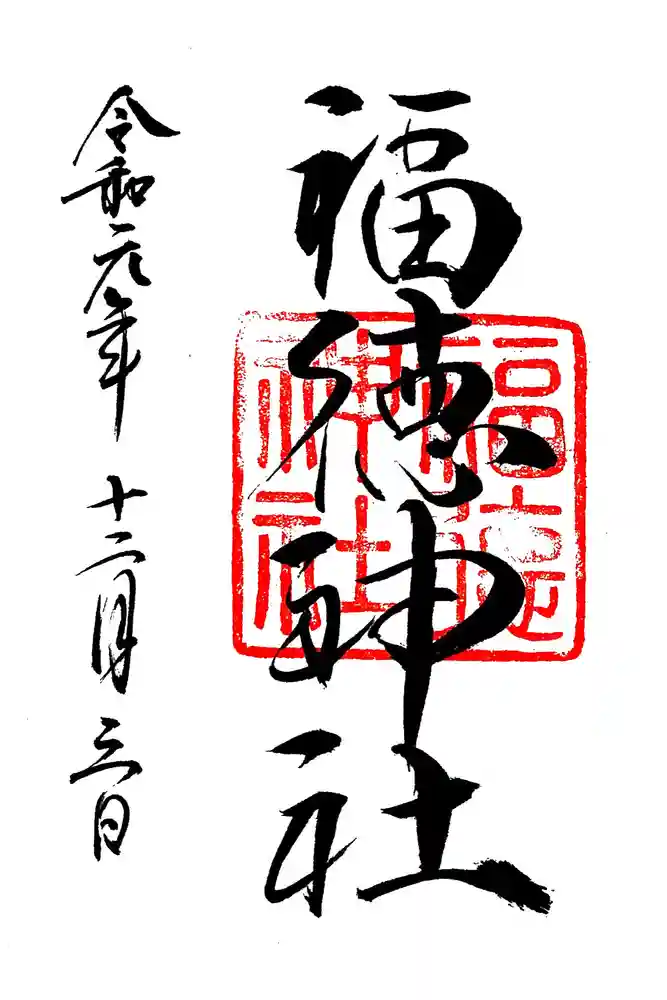 福徳神社
福徳
神社
令和元年 十二月 三日